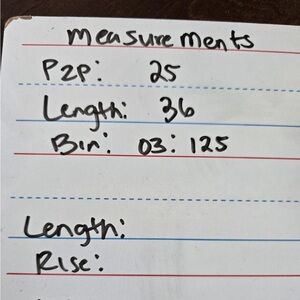 Measurements
P2P: 25
Length: 36
Bin: 03: 125
Length:
Rise: